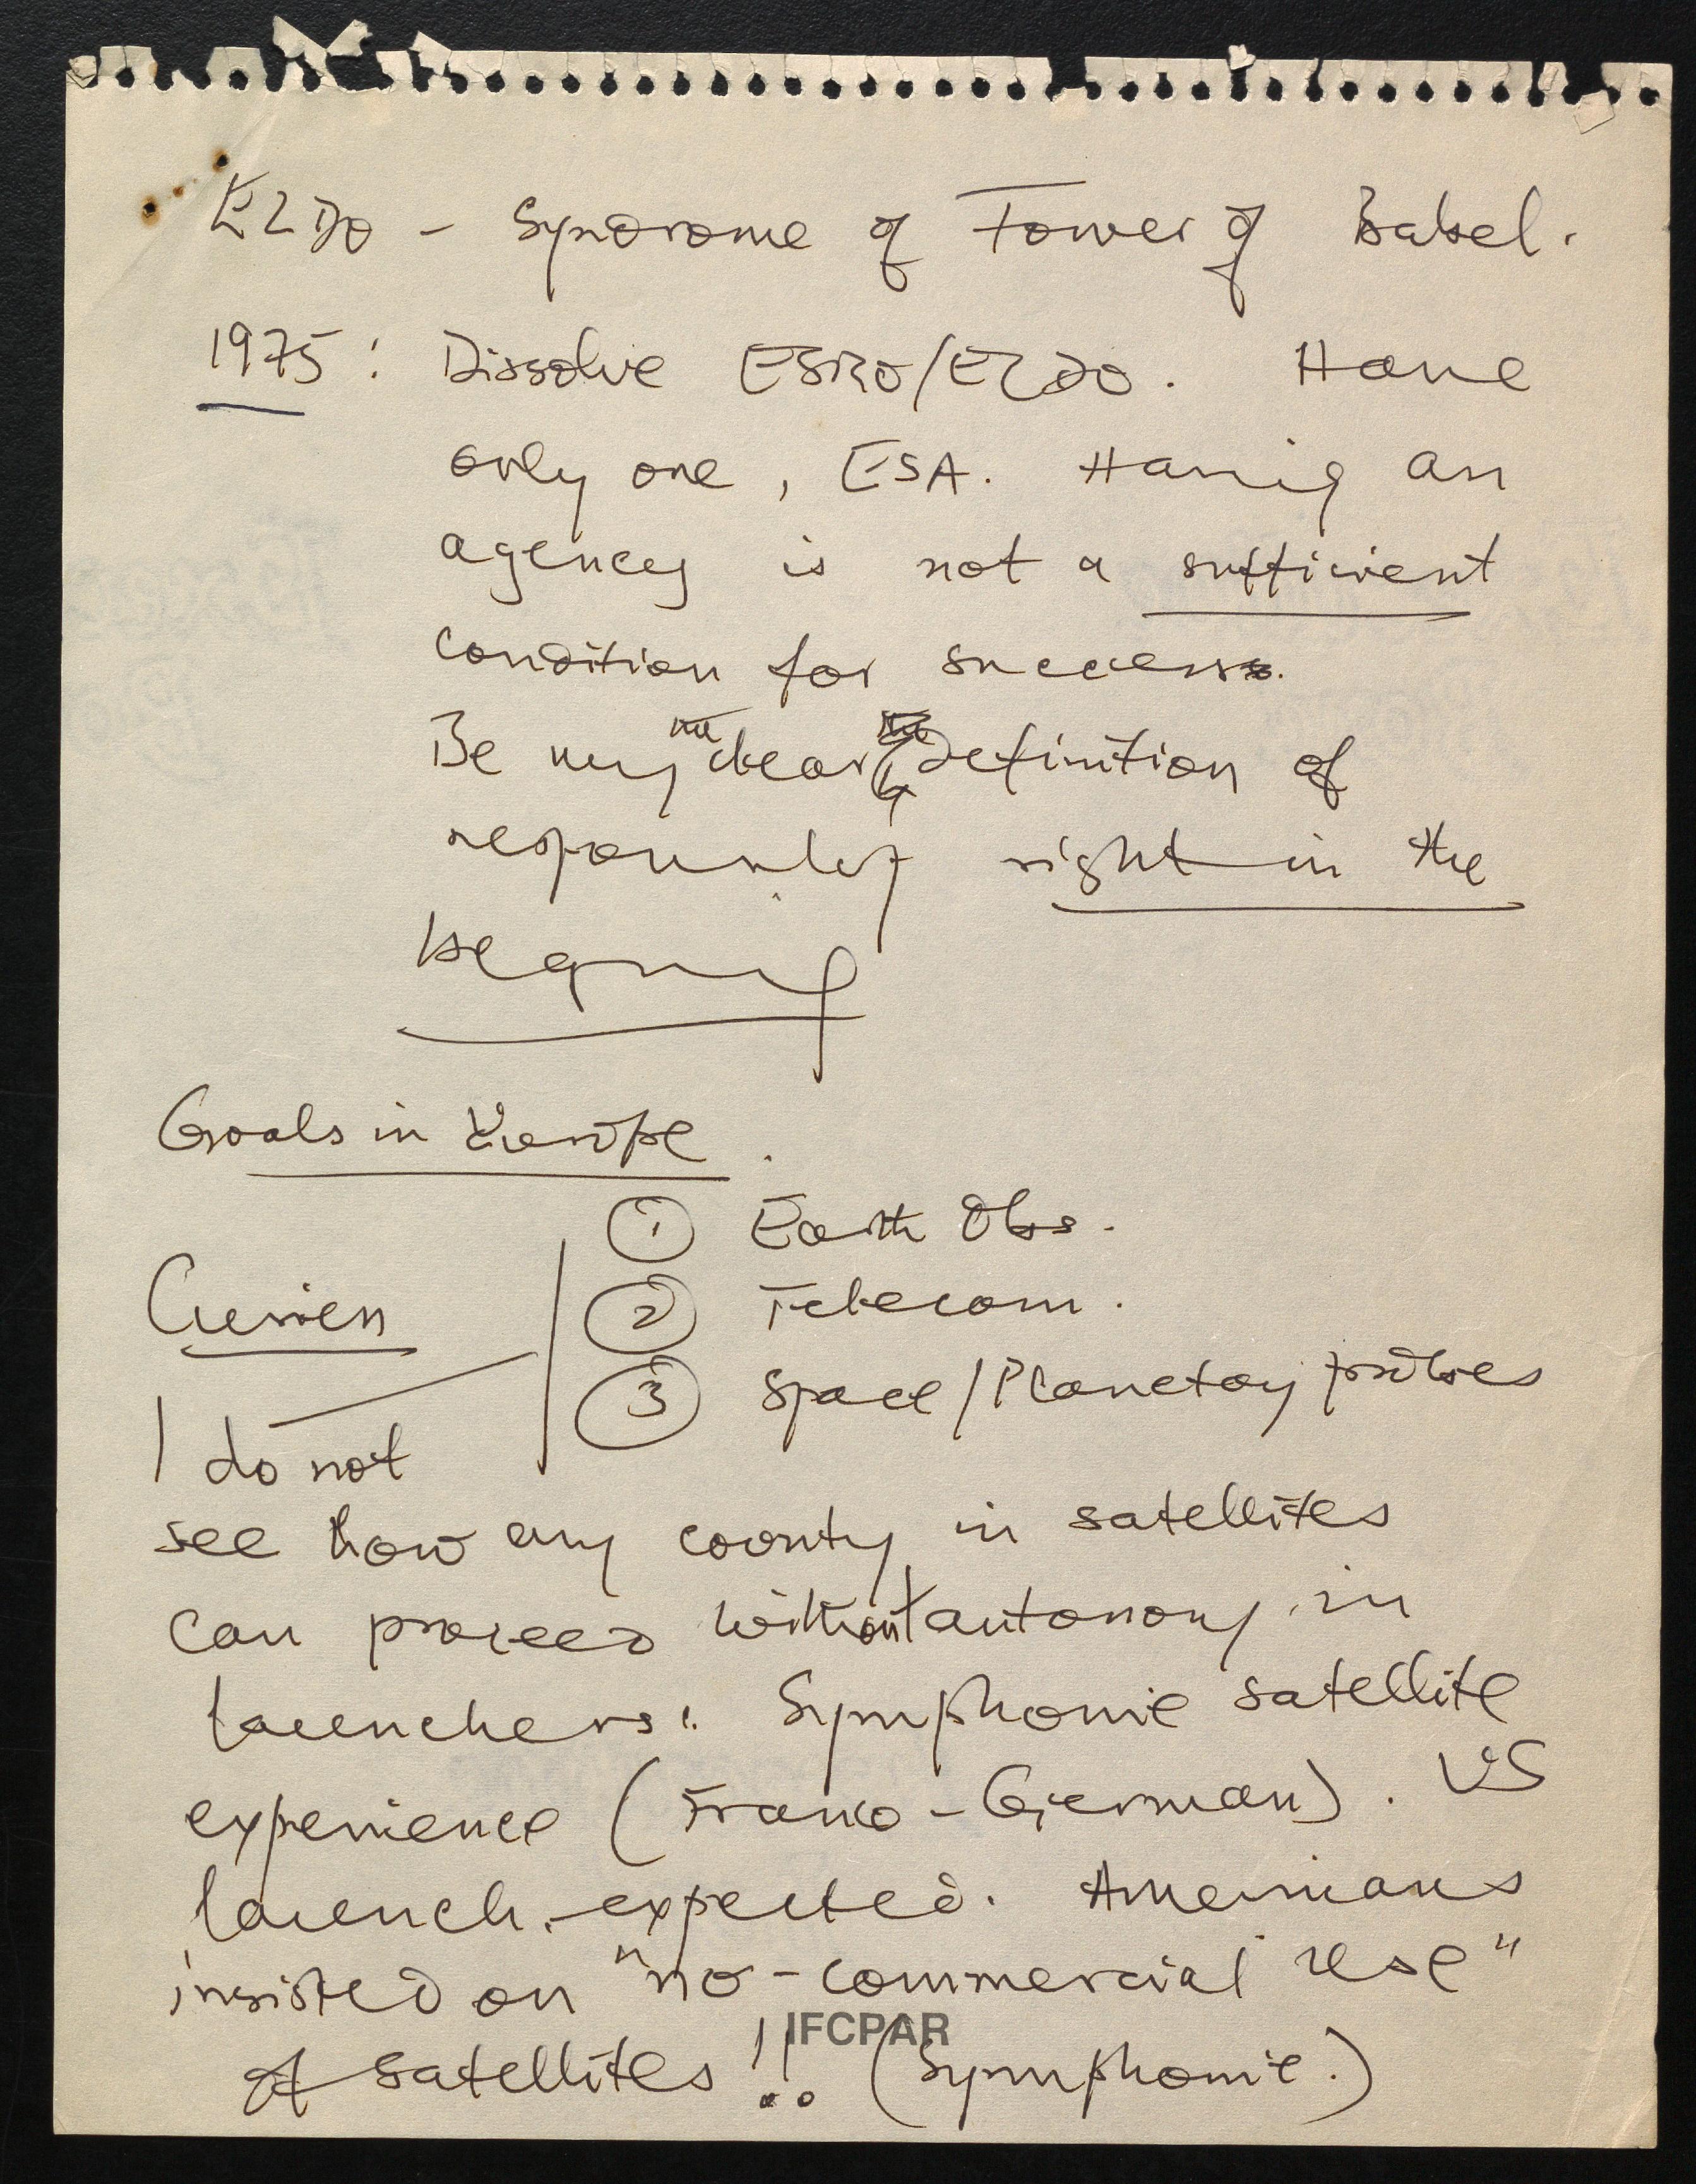 ELDO - Syndrome of Tower of Babel.
1975: Dissolve ESRO/ELDO. Have
only one, ESA. Having an
agency is not a sufficient
condition for success.
Be very clear the definition of
responsibility right in the
beginning
Goals in Europe.
① Earth Obs.
Curien
② Telecom.
③ Space/Planetary probes
I do not
see how any country in satellites
can proceed without autonomy in
launchers. Symphonie satellite
experience (Franco-German). US
launch expected. Americans
insisted on "no-commercial use"
of satellites!! (Symphonie.)
IFCPAR